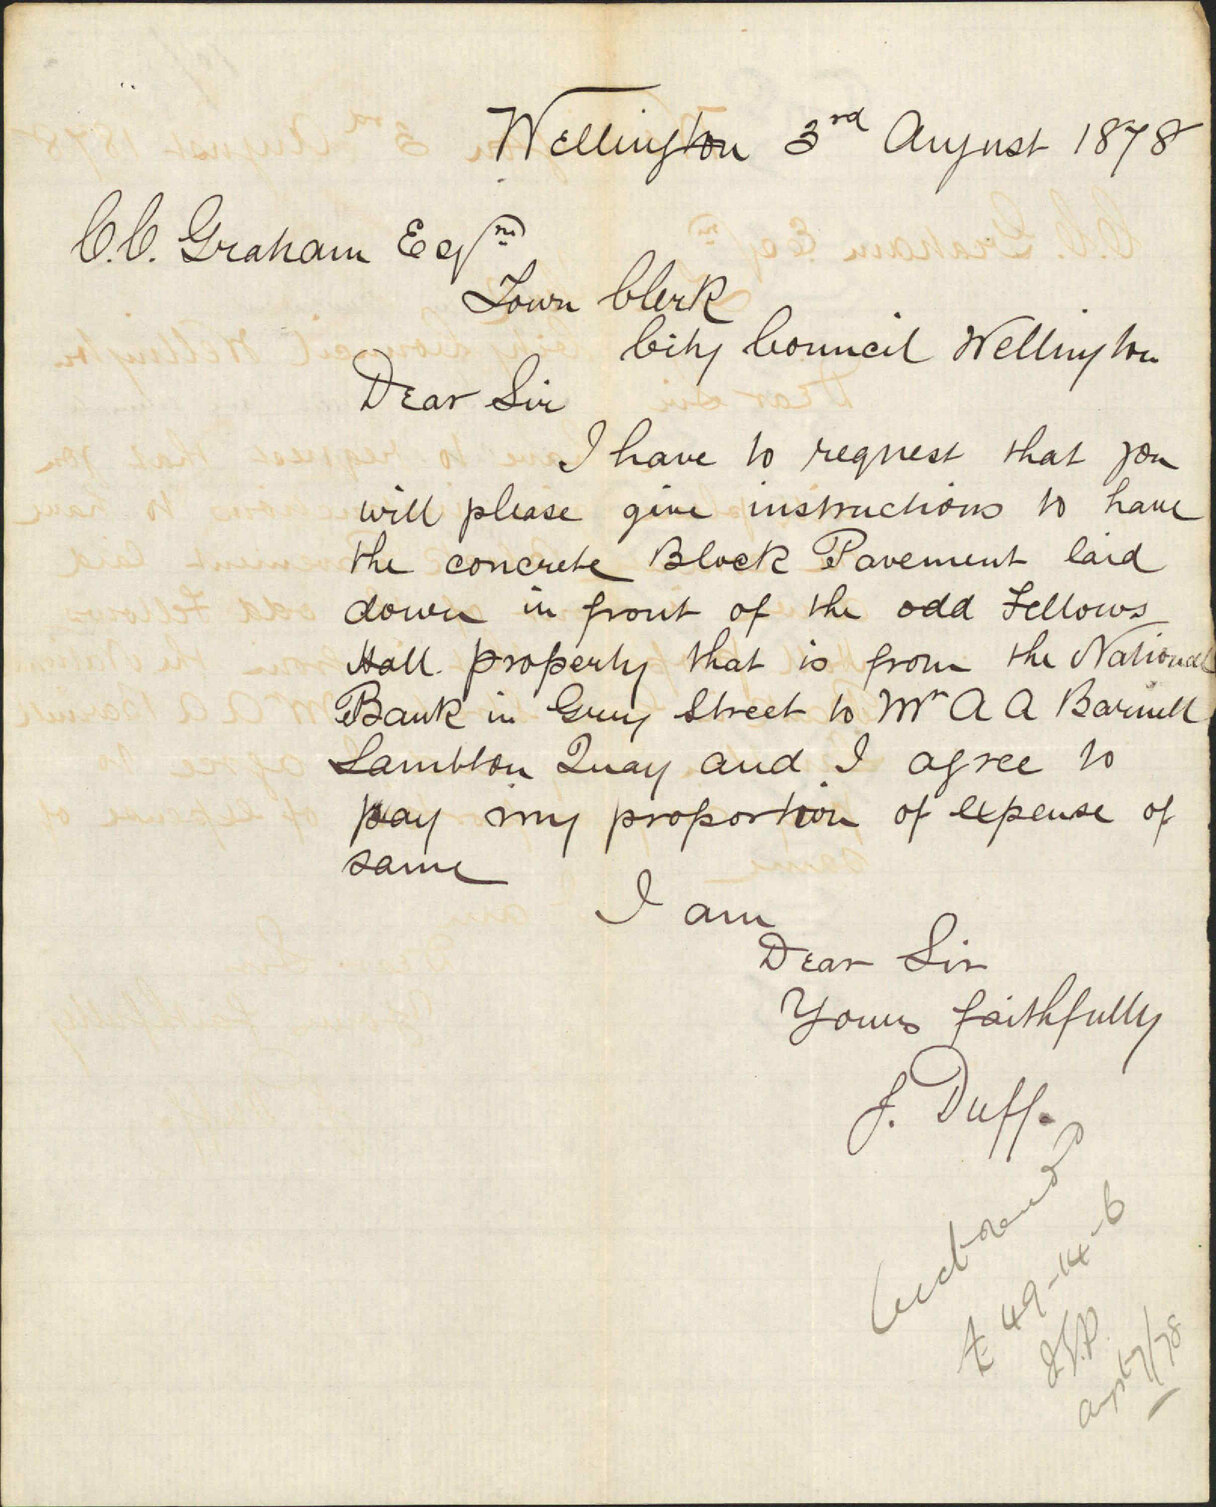 Wellington 3rd August 1878
C.C. Graham Esq
Town Clerk
City Council Wellington
Dear Sir
I have to request that you
will please give instructions to have
the concrete Block Pavement laid
down in front of the odd Fellows
Hall property that is from the National
Bank in Grey Street to Mr A A Barnett
Lambton Quay and I agree to
pay my proportion of expense of
same
I am
Dear Sir
Yours faithfully
J. Duff.
£ 49-14-6